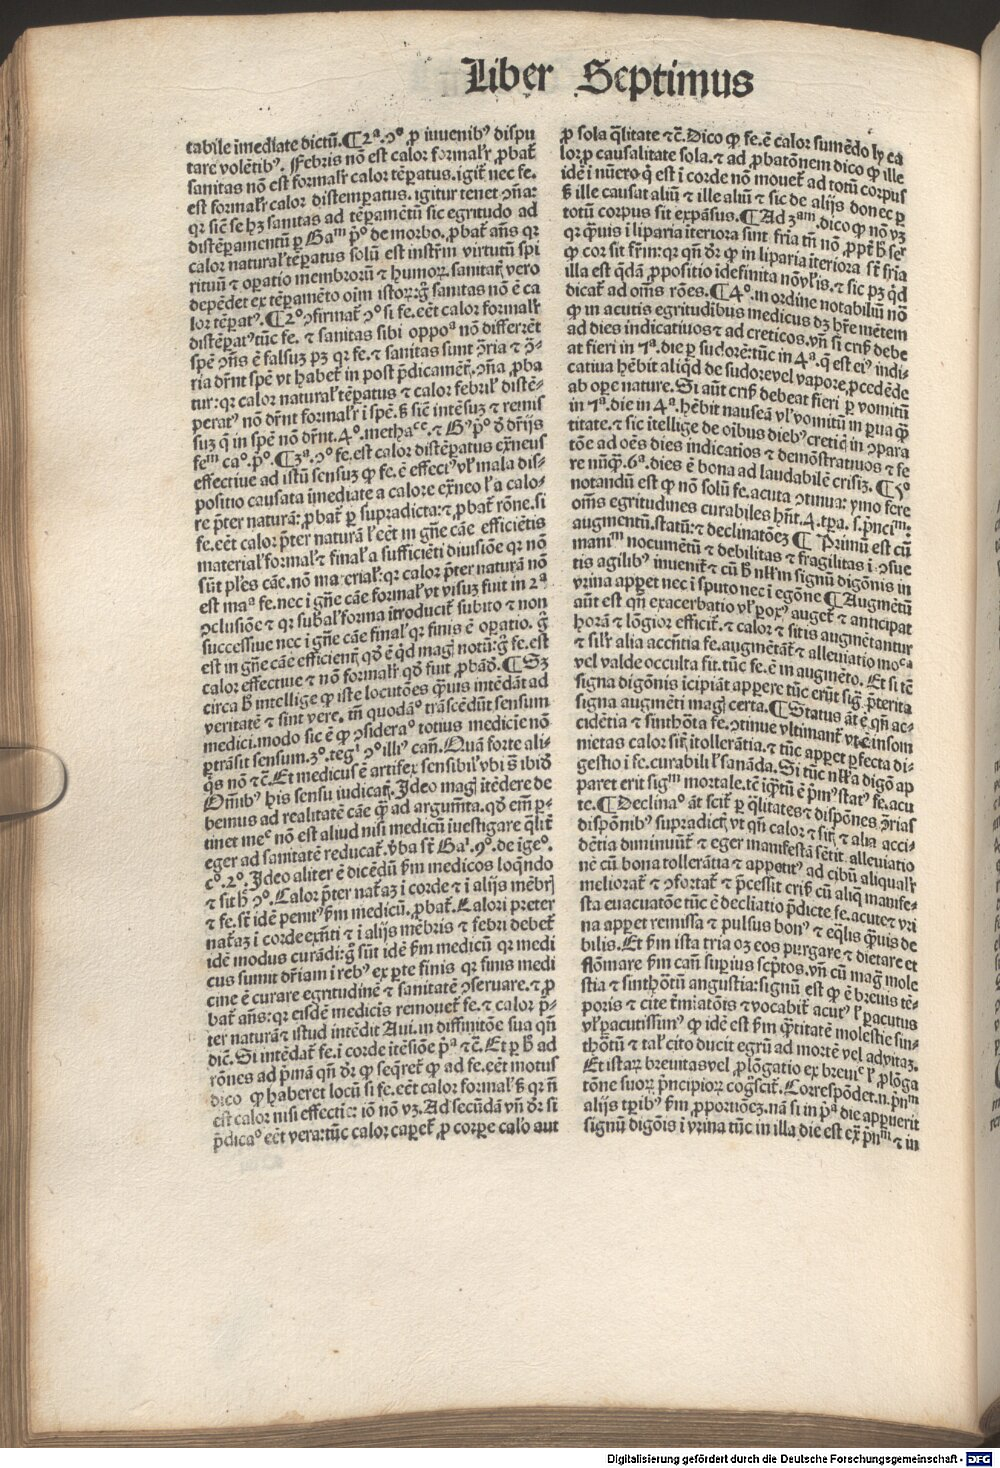 Liber Septimus
tabile īmediate dictū. ¶ 2ª. ↄº ꝓ iuuenibꝰ dispu
tare volētibꝰ. Febris nō est calor formalr̄ ꝓbat̄
sanitas nō est formalr̄ calor tēꝑatus. igit̄ nec fe.
est formalr̄ calor distemꝑatus. igitur tenet ↄ̄na:
qr siēē se hꝫ sanitas ad tēꝑamētū sic egritudo ad
distēꝑamentū ꝑ Gaᵐ p̄º de morbo. ꝓbat̄ añs qr
calor natural̄ tēꝑatus solū est instr̄m virtutū spi
rituū ⁊ oꝑatio membrorū ⁊ humoꝝ. sanitat̄ vero
depēdet ex tēꝑamēto oim istoꝝ: ḡ sanitas nō ē ca
lor tēꝑatꝰ. ¶ 2º ↄfirmat̄ ↄº si fe. eēt calor formalr̄
distēꝑatꝰ tūc fe. ⁊ sanitas sibi oppoª nō differrēt
spē ↄ̄ñs ē falsuꝫ pꝫ qr fe. ⁊ sanitas sunt ↄ̄ria ⁊ ↄ̄-
ria dr̄nt spē vt habet̄ in post p̄dicamēt̄. ↄ̄na ꝓba
tur: qr calor natural̄ tēꝑatus ⁊ calor febril̄ distē-
ꝑatꝰ nō dr̄nt formalr̄ i spē. ß siē intēsuꝫ ⁊ remis
suꝫ q̄ in spē nō dr̄nt. 4º. methaᶜᵉ. ⁊ Gꝰ p̄º ð dr̄ijs
feᵐ caº. p̄º. ¶ 3ª. ↄº fe. est calor distēꝑatus ex̄neus
effectiue ad istū sensuꝫ ꝙ fe. ē effecꝰ vl̄ mala dis-
positio causata īmediate a calore ex̄neo l̄ a calo-
re p̄ter naturā: ꝓbat̄ ꝑ supradicta: ⁊ ꝓbat̄ rōne. si
fe. eēt calor p̄ter naturā l̄ eēt in gn̄e cāe efficiētis
material̄ formal̄ ⁊ final̄ a sufficiēti diuisiōe qr nō
sūt pl̄es cāe. nō material̄: qr calor p̄ter naturā nō
est maª fe. nec i gn̄e cāe formal̄ vt visuꝫ fuit in 2ª
ↄclusiōe ⁊ qr subal̄ forma ītroducit̄ subito ⁊ non
successiue nec i gn̄e cāe final̄ qr finis ē oꝑatio. ḡ
est in gn̄e cāe efficient̄ qð ē q̄d mag̃ notū: ḡ fe. est
calor effectiue ⁊ nō formalr̄ qð fuit ꝓbād̄. ¶ Sꝫ
circa ħ intellige ꝙ iste locutōes q̄uis intēdāt ad
veritatē ⁊ sint vere. tñ quodāº trāscēdūt sensum
medici. modo sic ē ꝙ ↄsideraº totius medicīe nō
ꝑtrāsit sensum. 3º. tegⁱ ↄº illiꝰ cañ. Quā forte ali-
q̄s nō ⁊c̄. Et medicus ē artifex sensibil̄ vbi s̄ ibið
Om̄ibꝰ his sensu iudicat̄. Ideo mag̃ itēdere de
bemus ad realitatē cāe q̄ ad argum̄ta. qð em̄ ꝑ-
tinet meᶜ nō est aliud nisi medicū iuestigare q̄lit̄
eger ad sanitatē reducat̄. v̄ba st̄ Gaˡ. 9º. de igeº.
cº. 2º. Ideo aliter ē dicēdū ẜm medicos loq̄ndo
⁊ sit ħ ↄº. Calor p̄ter nat̄aꝫ i corde ⁊ i alijs mēbr̄
⁊ fe. st̄ idē penitꝰ ẜm medicū. ꝓbat̄. Calori preter
nat̄aꝫ i corde exn̄ti ⁊ i alijs mēbris ⁊ febri debet̄
idē modus curādi: ḡ sūt idē ẜm medicū qr medi
cus sumit dr̄iam i rebꝰ ex ꝑte finis qr finis medi
cine ē curare egritudinē ⁊ sanitatē ↄseruare. ⁊ ꝓ
bat̄ añs: qr eisdē medicis remouet̄ fe. ⁊ calor p̄-
ter naturā ⁊ istud intēdit Aui. in diffinitōe sua qñ
dic̄. Si intēdat̄ fe. i corde itēsiōe p̄ª ⁊c̄. Et ꝑ ħ ad
rōnes ad p̄mā qñ dr̄ ꝙ seq̄ret̄ ꝙ ad fe. eēt motus
dico ꝙ haberet locū si fe. eēt calor formal̄ ß qr ñ
est calor nisi effectie: iō nō vꝫ. Ad secūdā vñ dr̄ si
p̄dicaº eēt vera: tūc calor caꝑet̄ ꝓ corꝑe calo aut
ꝓ sola q̄litate ⁊c̄. Dico ꝙ fe. ē calor sumēdo ly ca
lor ꝓ causalitate sola. ⁊ ad ꝓbatōnem dico ꝙ ille
idē i nūero q̄ est i corde nō mouet̄ ad totū corpus
ß ille causat aliū ⁊ ille aliū ⁊ sic de alijs donec ꝑ
totū corpus sit expāsus. ¶ Ad 3ᵃᵐ. dico ꝙ nō vꝫ
qr q̄uis i liparia iteriora sint fria tñ nō ꝓpt̄ ħ seq̄r
ꝙ cor sit fr̄m: qr qñ dr̄ ꝙ in liparia iteriora st̄ fria
illa est q̄dā ꝓpositio idefinita nō vl̄is. ⁊ sic pꝫ q̄d
dicat̄ ad om̄s rōes. ¶ 4º. in ordine notabiliū nō
ꝙ in acutis egritudibus medicus dꝫ hr̄e mētem
ad dies indicatiuos ⁊ ad creticos. vñ si cris̄ debe
at fieri in 7ª. die ꝑ sudorē: tūc in 4ª. q̄ est eiꝰ indi-
catiua hēbit aliq̄d de sudore vel vapore ꝓcedēde
ab ope nature. Si aūt cris̄ debeat fieri ꝑ vomitū
in 7ª. die in 4ª. hēbit nauseā vl̄ vomitū in ꝑua q̄
titate. ⁊ sic itellige de oibus diebꝰ cretiɋ in ↄꝑara
tōe ad oēs dies indicatios ⁊ demōstratiuos ⁊ fe
re nūq̄. 6ª. dies ē bona ad laudabilē crisiꝫ. ¶ 5º
notandū est ꝙ nō solū fe. acuta ↄtinua: ymo fere
om̄s egritudines curabiles hn̄t. 4. tp̄a. s. p̄nciᵐ:
augmentū. statū: ⁊ declinatōeꝫ ¶ Primū est cū
maniᵐ nocumētū ⁊ debilitas ⁊ fragilitas i ↄsue
tis agilibꝰ inuenit̄ ⁊ cū ħ nl̄lm signū digōnis in
vrina apꝑet nec i sputo nec i egōne ¶ Augmētū
aūt est qñ exacerbatio vl̄ ꝑoxꝰ auget̄ ⁊ anticipat
horā ⁊ lōgior efficit̄. ⁊ calor ⁊ sitis augmētantur
⁊ silr̄ alia accn̄tia fe. augmētāt̄ ⁊ alleuiatio moᶜª
vel valde occulta fit. tūc fe. ē in augmēto. Et si tē
signa digōnis īcipiāt apꝑere tūc erūt sig̃ p̄terita
signa augmēti mag̃ certa. ¶ Status āt ē qñ ac-
cidētia ⁊ sinthōta fe. ↄtinue vltimant̄ vt ē insom
nietas calor sit̄ itollerātia. ⁊ tūc apꝑet ꝑfecta di-
gestio i fe. curabili l̄ sanāda. Si tūc nl̄la digō ap
paret erit sigᵐ mortale. tē iq̄tū ē p̄mꝰ statꝰ fe. acu
te. ¶ Declinaº āt scit̄ ꝑ q̄litates ⁊ dispōnes ↄ̄rias
dispōnibꝰ supradict̄ vt qñ calor ⁊ sit̄ ⁊ alia acci-
dētia diminuūt̄ ⁊ eger manifestā sētit alleuiatio
nē cū bona tollerātia ⁊ appetitꝰ ad cibū aliqualr̄
meliorat̄ ⁊ ↄfortat̄ ⁊ p̄cessit cris̄ cū aliq̄ manife-
sta euacuatōe tūc ē decliatio p̄dicte fe. acute ⁊ vri
na apꝑet remissa ⁊ pulsus bonꝰ ⁊ eq̄lis q̄uis de
bilis. Et ẜm ista tria oꝫ eos purgare ⁊ dietare et
flōmare ẜm cañ suꝑius sc̄ptos. vñ cū mag̃ mole
stia ⁊ sinthōtū angustia: signū est ꝙ ē breuis tē-
poris ⁊ cite t̄miatōis ⁊ vocabit̄ acutꝰ l̄ ꝑacutus
vl̄ ꝑacutissimꝰ ꝙ idē est ẜm q̄titatē molestie sin-
thōtū ⁊ tal̄ cito ducit egrū ad mortē vel ad vitaꝫ.
Et istaꝝ breuitas vel ꝓlōgatio ex breuiᶜ l̄ ꝓlōga
tōne suoꝝ p̄ncipioꝝ cog̃scit̄. Correspōdet. n. p̄nᵐ
alijs tp̄ibꝰ ẜm ꝓportiōeꝫ. nā si in p̄ª die apꝑuerit
signū digōis i vrina tūc in illa die est ex̄ p̄nᵐ ⁊ in
Digitalisierung gefördert durch die Deutsche Forschungsgemeinschaft - DFG